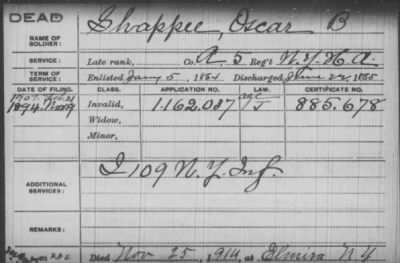 DEAD
NAME OF SOLDIER: Shappee, Oscar B
SERVICE: Late rank, Co. A, 5 Reg't N.Y.H.A.
TERM OF SERVICE: Enlisted Jany 5, 1864 Discharged June 22, 1865
DATE OF FILING. CLASS. APPLICATION NO. LAW. CERTIFICATE NO.
1894. Nov 9 Invalid, 1.162.037 J 885.678
Widow,
Minor,
ADDITIONAL SERVICES: I 109 N.Y. Inf.
REMARKS:
Died Nov 25, 1914, at Elmira N.Y.